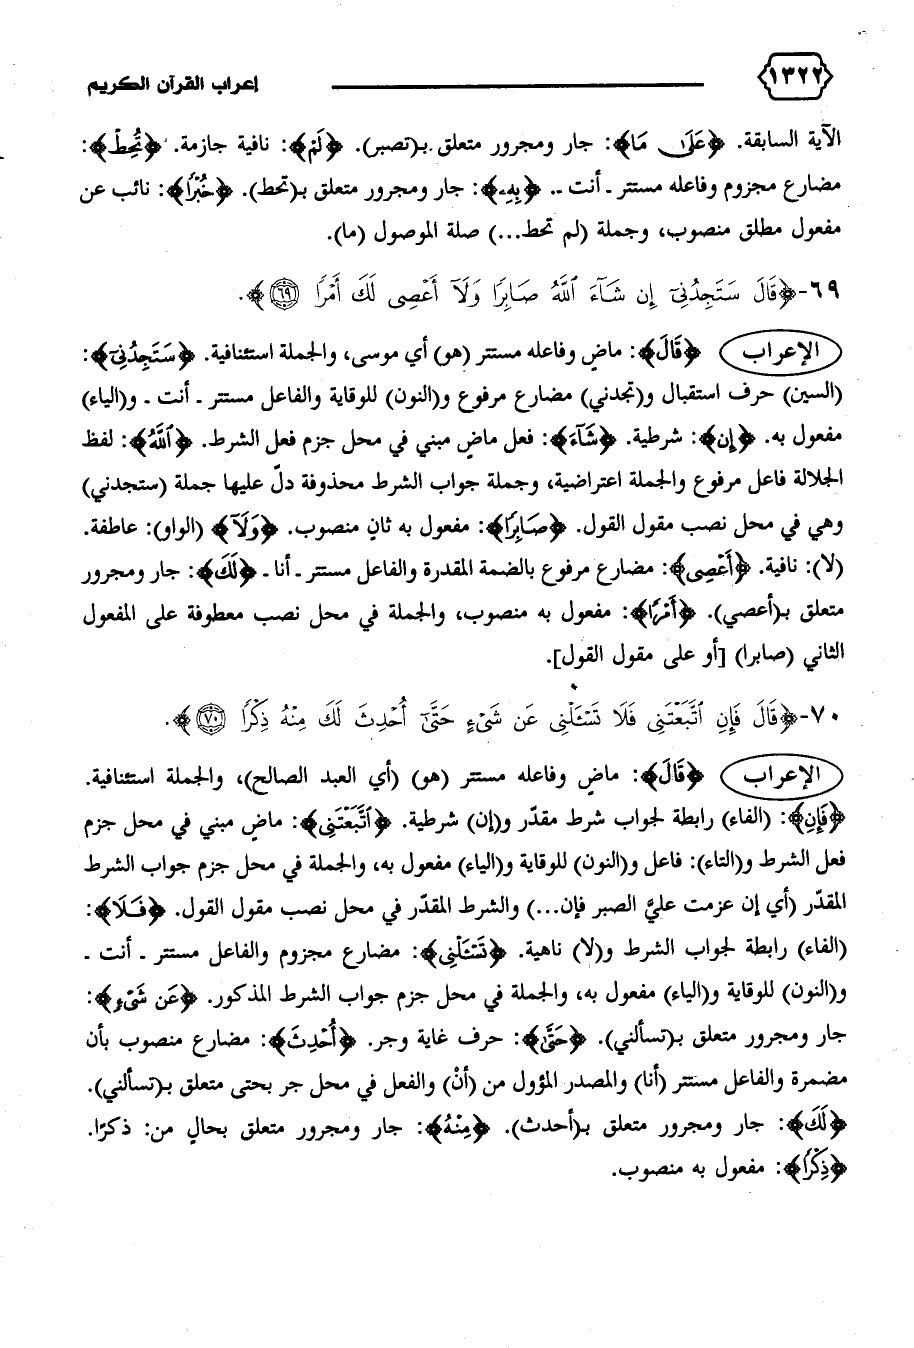 ١٣٢٢
إعراب القرآن الكريم
الآية السابقة. ﴿عَلَىٰ مَا﴾: جار ومجرور متعلق بـ(تصبر). ﴿لَمْ﴾: نافية جازمة. ﴿تُحِطْ﴾:
مضارع مجزوم وفاعله مستتر ـ أنت ـ. ﴿بِهِۦ﴾: جار ومجرور متعلق بـ(تحط). ﴿خُبْرًا﴾: نائب عن
مفعول مطلق منصوب، وجملة (لم تحط...) صلة الموصول (ما).
٦٩-﴿قَالَ سَتَجِدُنِىٓ إِن شَآءَ ٱللَّهُ صَابِرًا وَلَآ أَعْصِى لَكَ أَمْرًا ٦٩﴾.
الإعراب ﴿قَالَ﴾: ماضٍ وفاعله مستتر (هو) أي موسى، والجملة استئنافية. ﴿سَتَجِدُنِىٓ﴾:
(السين) حرف استقبال و(تجدني) مضارع مرفوع و(النون) للوقاية والفاعل مستتر ـ أنت ـ و(الياء)
مفعول به. ﴿إِن﴾: شرطية. ﴿شَآءَ﴾: فعل ماضٍ مبني في محل جزم فعل الشرط. ﴿ٱللَّهُ﴾: لفظ
الجلالة فاعل مرفوع والجملة اعتراضية، وجملة جواب الشرط محذوفة دلّ عليها جملة (ستجدني)
وهي في محل نصب مقول القول. ﴿صَابِرًا﴾: مفعول به ثانٍ منصوب. ﴿وَلَآ﴾ (الواو): عاطفة.
(لا): نافية. ﴿أَعْصِى﴾: مضارع مرفوع بالضمة المقدرة والفاعل مستتر ـ أنا ـ ﴿لَكَ﴾: جار ومجرور
متعلق بـ(أعصي). ﴿أَمْرًا﴾: مفعول به منصوب، والجملة في محل نصب معطوفة على المفعول
الثاني (صابرا) [أو على مقول القول].
٧٠-﴿قَالَ فَإِنِ ٱتَّبَعْتَنِى فَلَا تَسْـَٔلْنِى عَن شَىْءٍ حَتَّىٰٓ أُحْدِثَ لَكَ مِنْهُ ذِكْرًا ٧٠﴾.
الإعراب ﴿قَالَ﴾: ماضٍ وفاعله مستتر (هو) (أي العبد الصالح)، والجملة استئنافية.
﴿فَإِنِ﴾: (الفاء) رابطة لجواب شرط مقدّر و(إن) شرطية. ﴿ٱتَّبَعْتَنِى﴾: ماضٍ مبني في محل جزم
فعل الشرط و(التاء): فاعل و(النون) للوقاية و(الياء) مفعول به، والجملة في محل جزم جواب الشرط
المقدّر (أي إن عزمت عليَّ الصبر فإن...) والشرط المقدّر في محل نصب مقول القول. ﴿فَلَا﴾:
(الفاء) رابطة لجواب الشرط و(لا) ناهية. ﴿تَسْـَٔلْنِى﴾: مضارع مجزوم والفاعل مستتر ـ أنت ـ
و(النون) للوقاية و(الياء) مفعول به، والجملة في محل جزم جواب الشرط المذكور. ﴿عَن شَىْءٍ﴾:
جار ومجرور متعلق بـ(تسألني). ﴿حَتَّىٰ﴾: حرف غاية وجر. ﴿أُحْدِثَ﴾: مضارع منصوب بأن
مضمرة والفاعل مستتر (أنا) والمصدر المؤول من (أنْ) والفعل في محل جر بحتى متعلق بـ(تسألني).
﴿لَكَ﴾: جار ومجرور متعلق بـ(أحدث). ﴿مِنْهُ﴾: جار ومجرور متعلق بحالٍ من: ذكرًا.
﴿ذِكْرًا﴾: مفعول به منصوب.